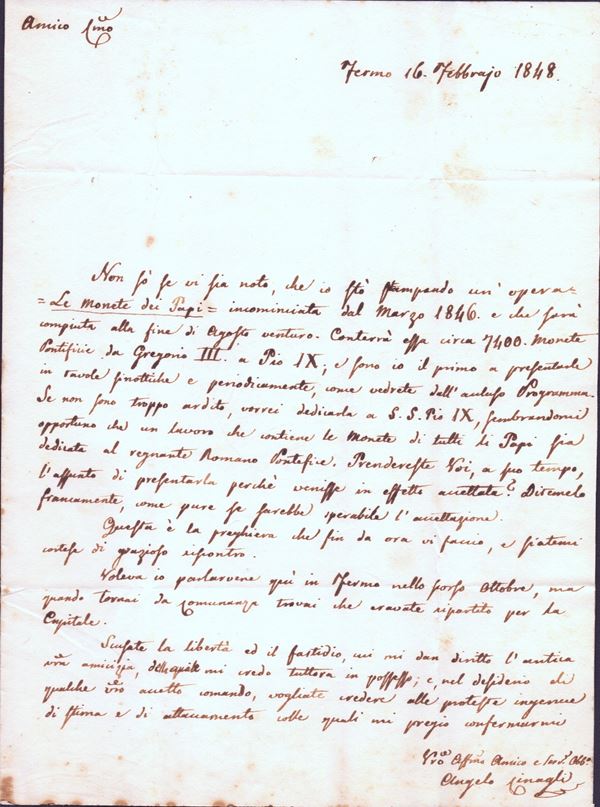 Amico Cmo
Fermo 16. Febbrajo 1848.
Non sò se vi sia noto, che io stò stampando un' opera =
= Le Monete dei Papi = incominciata dal Marzo 1846. e che sarà
compiuta alla fine di Agosto venturo. Conterrà essa circa 7400. Monete
Pontificie da Gregorio III. a Pio IX, e sono io il primo a presentarle
in tavole sinottiche e periodicamente, come vedrete dall' accluso Programma.
Se non sono troppo ardito, vorrei dedicarla a S. S. Pio IX, sembrandomi
opportuno che un lavoro che contiene le Monete di tutti li Papi sia
dedicata al regnante Romano Pontefice. Prendereste Voi, a suo tempo,
l' assunto di presentarla perchè venisse in effetto accettata? Ditemelo
francamente, come pure se sarebbe sperabile l' accettazione.
Questa è la preghiera che fin da ora vi faccio, e siatemi
cortese di grazioso riscontro.
Voleva io parlarvene quì in Fermo nello scorso Ottobre, ma
quando tornai da Comunanza trovai che eravate ripartito per la
Capitale.
Scusate la libertà ed il fastidio, cui mi dan diritto l' antica
vra amicizia, della quale mi credo tuttora in possesso; e, nel desiderio di
qualche vro accetto comando, vogliate credere alle proteste ingenue
di stima e di attaccamento colle quali mi pregio confermarmi
Vro Affmo Amico e Servo Obbo
Angelo Cinagli